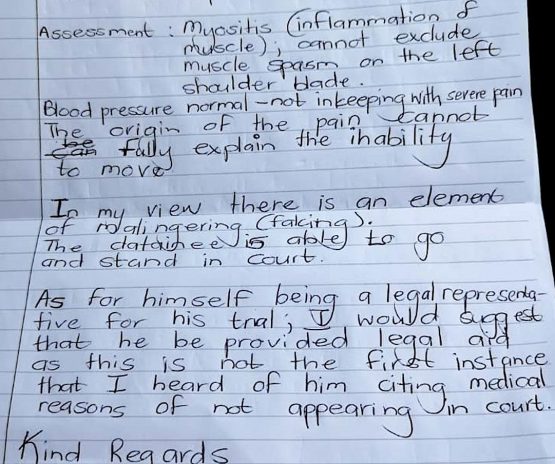 Assessment : Myositis (inflammation of
muscle); cannot exclude
muscle spasm on the left
shoulder blade.
Blood pressure normal - not inkeeping with severe pain
The origin of the pain cannot
fully explain the ihability
to move
In my view there is an element
of malingering (faking).
The datainee is able to go
and stand in court.
As for himself being a legal representa-
tive for his trial; I would suggest
that he be provided legal aid
as this is not the first instance
that I heard of him citing medical
reasons of not appearing in court.
Kind Regards